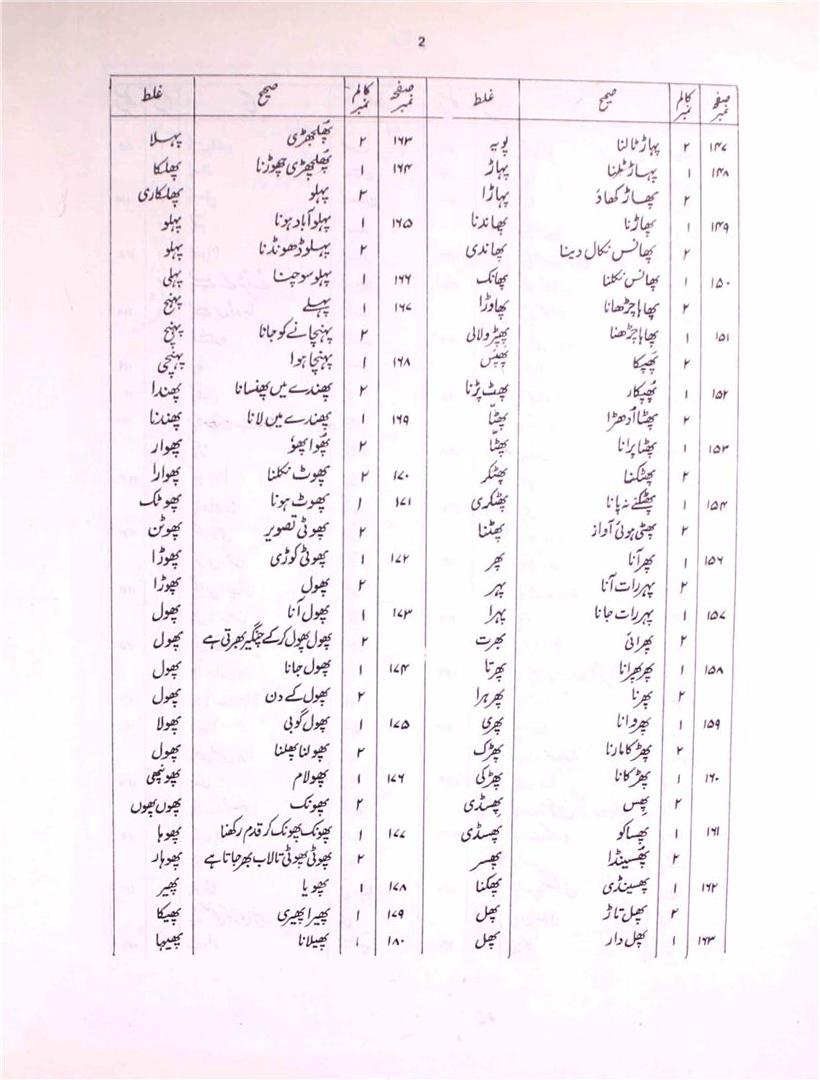 2
صفحہ نمبر کالم نمبر صحیح غلط صفحہ نمبر کالم نمبر صحیح غلط
۱۴۷ ۲ پہاڑ ٹالنا پویہ ۱۶۳ ۲ پھلجھڑی پہلا
۱۴۸ ۱ پہاڑ ٹلنا پہاڑ ۱۶۴ ۱ پھلجھڑی چھوڑنا پھلکا
۲ پھاڑ کھاؤ پہاڑا ۲ پہلو پھلکاری
۱۴۹ ۱ پھاڑنا پھاندنا ۱۶۵ ۱ پہلو آباد ہونا پہلو
۲ پھانس نکال دینا پھاندی ۲ پہلو ڈھونڈنا پہلو
۱۵۰ ۱ پھانس نکلنا پھانک ۱۶۶ ۱ پہلو سوچنا پہلی
۲ پھاہا چڑھانا پھاوڑا ۱۶۷ ۱ پہلے پہنچ
۱۵۱ ۱ پھاہا چڑھنا پھپڑولالی ۲ پہنچانے کو جانا پہنچ
۲ پھپکا پھپس ۱۶۸ ۱ پہنچا ہوا پہنچی
۱۵۲ ۱ پھپکار پھٹ پڑنا ۲ پھندے میں پھنسانا پھندا
۲ پھٹا اُدھڑا پھٹا ۱۶۹ ۱ پھندے میں لانا پھندنا
۱۵۳ ۱ پھٹا پرانا پھٹا ۲ پھوا پھو پھوار
۲ پھٹکنا پھٹکر ۱۷۰ ۲ پھوٹ نکلنا پھوارا
۱۵۴ ۱ پھٹکنے نہ پانا پھٹکری ۱۷۱ ۱ پھوٹ ہونا پھوٹک
۲ پھٹی ہوئی آواز پھٹنا ۲ پھوٹی تصویر پھوٹن
۱۵۶ ۱ پھر آنا پھر ۱۷۲ ۱ پھوٹی کوڑی پھوڑا
۲ پہر رات آنا پہر ۲ پھول پھوڑا
۱۵۷ ۱ پہر رات جانا پہرا ۱۷۳ ۱ پھول آنا پھول
۲ پھرائی بھرت ۲ پھول پھول کر کے چنگیر بھرتی ہے پھول
۱۵۸ ۱ پھر پھرانا پھرتا ۱۷۴ ۱ پھول جانا پھول
۲ پھرنا پھرہرا ۲ پھول کے دن پھول
۱۵۹ ۱ پھروانا پھری ۱۷۵ ۱ پھول گوبی پھولا
۲ پھڑکا مارنا پھڑک ۲ پھولنا پھلنا پھول
۱۶۰ ۱ پھڑکانا پھڑکی ۱۷۶ ۱ پھولام پھونچھی
۲ پھس پھسڈی ۲ پھونک پھوں پھوں
۱۶۱ ۱ پھساکو پھسڈی ۱۷۷ ۱ پھونک پھونک کر قدم رکھنا پھوہا
۲ پھسینڈا پھسر ۲ پھوئی پھوئی تالاب بھر جاتا ہے پھوہار
۱۶۲ ۱ پھسینڈی پھکنا ۱۷۸ ۱ پھویا پھیر
۲ پھل تاڑ پھل ۱۷۹ ۱ پھیرا پھیری پھیکا
۱۶۳ ۱ پھل دار پھل ۱۸۰ ۱ پھیلانا پھیہا